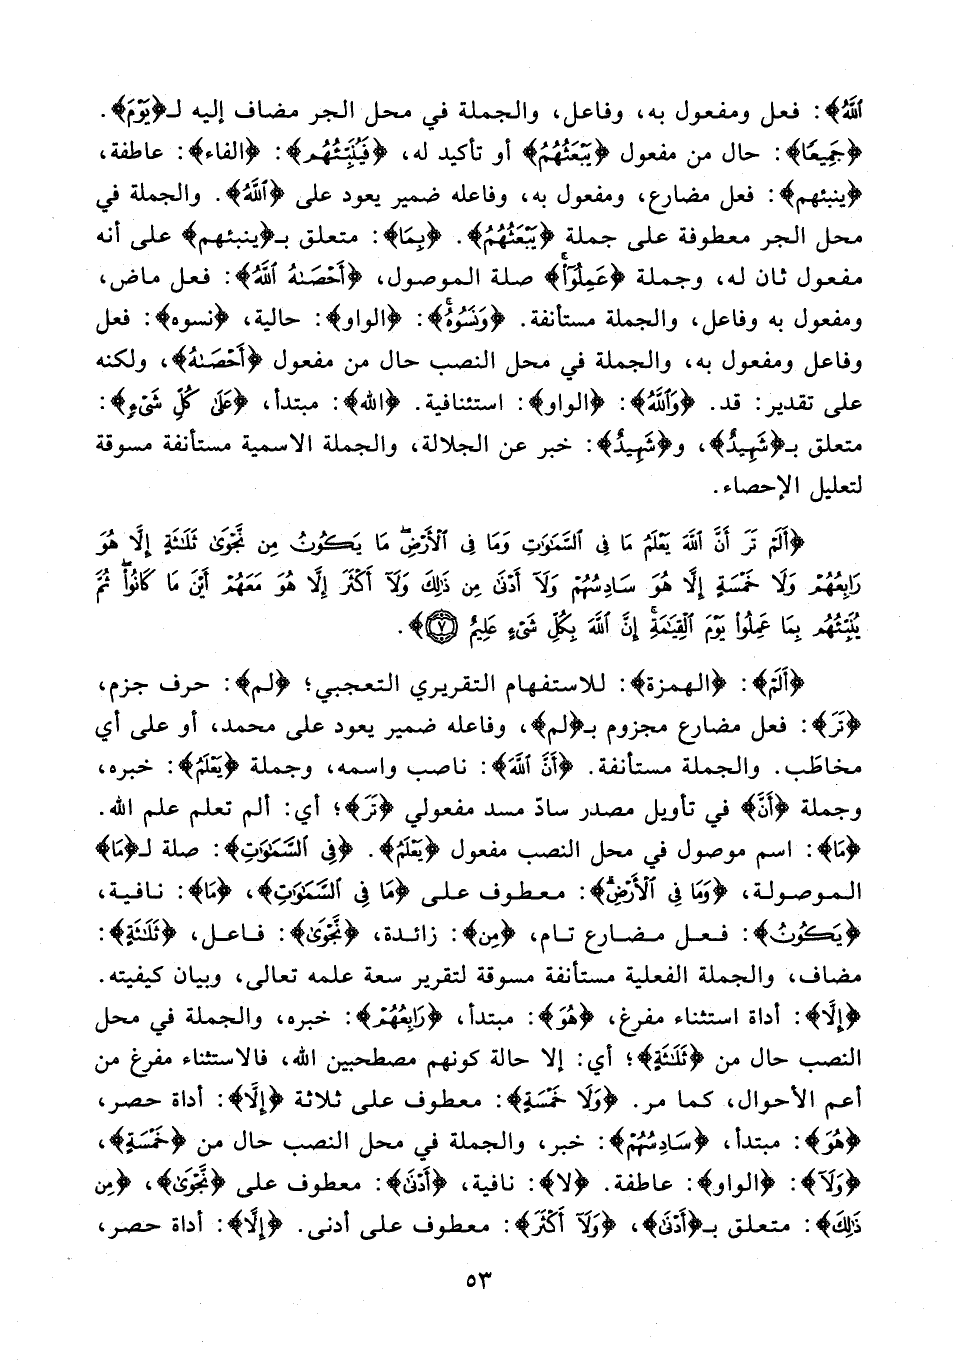 ٱللَّهُ﴾: فعل ومفعول به، وفاعل، والجملة في محل الجر مضاف إليه لـ﴿يَوْمَ﴾.
﴿جَمِيعًا﴾: حال من مفعول ﴿يَبْعَثُهُمُ﴾ أو تأكيد له، ﴿فَيُنَبِّئُهُم﴾: ﴿الفاء﴾: عاطفة،
﴿ينبئهم﴾: فعل مضارع، ومفعول به، وفاعله ضمير يعود على ﴿ٱللَّهُ﴾. والجملة في
محل الجر معطوفة على جملة ﴿يَبْعَثُهُمُ﴾. ﴿بِمَا﴾: متعلق بـ﴿ينبئهم﴾ على أنه
مفعول ثان له، وجملة ﴿عَمِلُوٓا۟ۚ﴾ صلة الموصول، ﴿أَحْصَىٰهُ ٱللَّهُ﴾: فعل ماض،
ومفعول به وفاعل، والجملة مستأنفة. ﴿وَنَسُوهُۚ﴾: ﴿الواو﴾: حالية، ﴿نسوه﴾: فعل
وفاعل ومفعول به، والجملة في محل النصب حال من مفعول ﴿أَحْصَىٰهُ﴾، ولكنه
على تقدير: قد. ﴿وَٱللَّهُ﴾: ﴿الواو﴾: استئنافية. ﴿الله﴾: مبتدأ، ﴿عَلَىٰ كُلِّ شَىْءٍ﴾:
متعلق بـ﴿شَهِيدٌ﴾، و﴿شَهِيدٌ﴾: خبر عن الجلالة، والجملة الاسمية مستأنفة مسوقة
لتعليل الإحصاء.
﴿أَلَمْ تَرَ أَنَّ ٱللَّهَ يَعْلَمُ مَا فِى ٱلسَّمَٰوَٰتِ وَمَا فِى ٱلْأَرْضِۖ مَا يَكُونُ مِن نَّجْوَىٰ ثَلَٰثَةٍ إِلَّا هُوَ
رَابِعُهُمْ وَلَا خَمْسَةٍ إِلَّا هُوَ سَادِسُهُمْ وَلَآ أَدْنَىٰ مِن ذَٰلِكَ وَلَآ أَكْثَرَ إِلَّا هُوَ مَعَهُمْ أَيْنَ مَا كَانُوا۟ۖ ثُمَّ
يُنَبِّئُهُم بِمَا عَمِلُوا۟ يَوْمَ ٱلْقِيَٰمَةِۚ إِنَّ ٱللَّهَ بِكُلِّ شَىْءٍ عَلِيمٌ ٧﴾.
﴿أَلَمْ﴾: ﴿الهمزة﴾: للاستفهام التقريري التعجبي؛ ﴿لم﴾: حرف جزم،
﴿تَرَ﴾: فعل مضارع مجزوم بـ﴿لم﴾، وفاعله ضمير يعود على محمد، أو على أي
مخاطَب. والجملة مستأنفة. ﴿أَنَّ ٱللَّهَ﴾: ناصب واسمه، وجملة ﴿يَعْلَمُ﴾: خبره،
وجملة ﴿أَنَّ﴾ في تأويل مصدر سادّ مسد مفعولي ﴿تَرَ﴾؛ أي: ألم تعلم علم الله.
﴿مَا﴾: اسم موصول في محل النصب مفعول ﴿يَعْلَمُ﴾. ﴿فِى ٱلسَّمَٰوَٰتِ﴾: صلة لـ﴿مَا﴾
الموصولة، ﴿وَمَا فِى ٱلْأَرْضِۖ﴾: معطوف على ﴿مَا فِى ٱلسَّمَٰوَٰتِ﴾، ﴿مَا﴾: نافية،
﴿يَكُونُ﴾: فعل مضارع تام، ﴿مِن﴾: زائدة، ﴿نَّجْوَىٰ﴾: فاعل، ﴿ثَلَٰثَةٍ﴾:
مضاف، والجملة الفعلية مستأنفة مسوقة لتقرير سعة علمه تعالى، وبيان كيفيته.
﴿إِلَّا﴾: أداة استثناء مفرغ، ﴿هُوَ﴾: مبتدأ، ﴿رَابِعُهُمْ﴾: خبره، والجملة في محل
النصب حال من ﴿ثَلَٰثَةٍ﴾؛ أي: إلا حالة كونهم مصطحبين الله، فالاستثناء مفرغ من
أعم الأحوال، كما مر. ﴿وَلَا خَمْسَةٍ﴾: معطوف على ثلاثة ﴿إِلَّا﴾: أداة حصر،
﴿هُوَ﴾: مبتدأ، ﴿سَادِسُهُمْ﴾: خبر، والجملة في محل النصب حال من ﴿خَمْسَةٍ﴾،
﴿وَلَآ﴾: ﴿الواو﴾: عاطفة. ﴿لا﴾: نافية، ﴿أَدْنَىٰ﴾: معطوف على ﴿نَّجْوَىٰ﴾، ﴿مِن
ذَٰلِكَ﴾: متعلق بـ﴿أَدْنَىٰ﴾، ﴿وَلَآ أَكْثَرَ﴾: معطوف على أدنى. ﴿إِلَّا﴾: أداة حصر،
٥٣